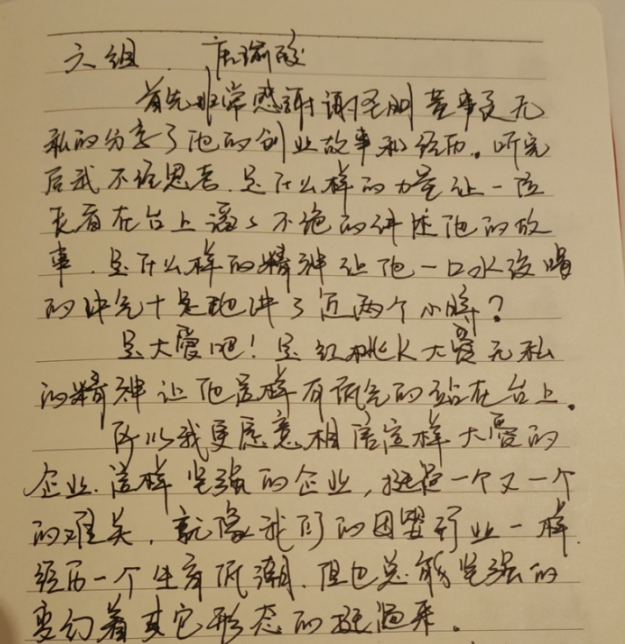 六组 唐瑜
首先非常感谢谢圣明董事长无
私的分享了他的创业故事和经历。听完
后我不经思考，是什么样的力量让一位
长者在台上滔滔不绝的讲述他的故
事，是什么样的精神让他一口水没喝
的讲完十足地讲了近两个小时？
是大爱吧！是红桃K大爱无私
的精神让他这样有底气的站在台上。
所以我更愿意相信这样大爱的
企业，这样坚强的企业，挺过一个又一个
的难关，就像我们的行业一样，
经历一个生育低潮，但也总能坚强的
变幻着其它形态的挺过来。